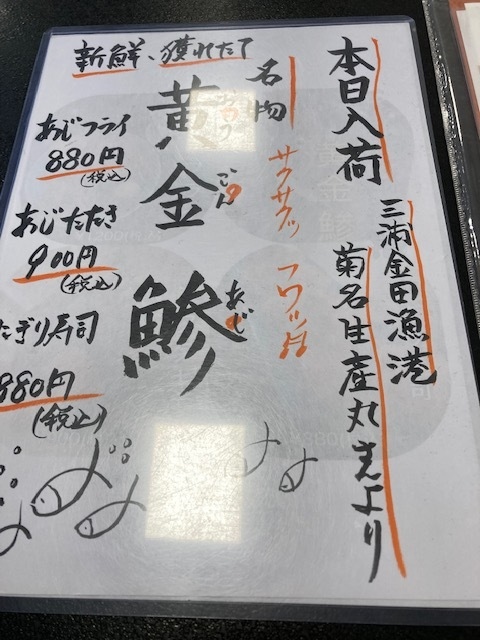 本日入荷
三浦金田漁港
菊名生産丸さんより
新鮮、獲れたて
名物
黄金鯵
ごん
あじ
サクサクッ フワッ♬
あじフライ
880円
(税込)
あじたたき
900円
(税込)
にぎり寿司
880円
(税込)